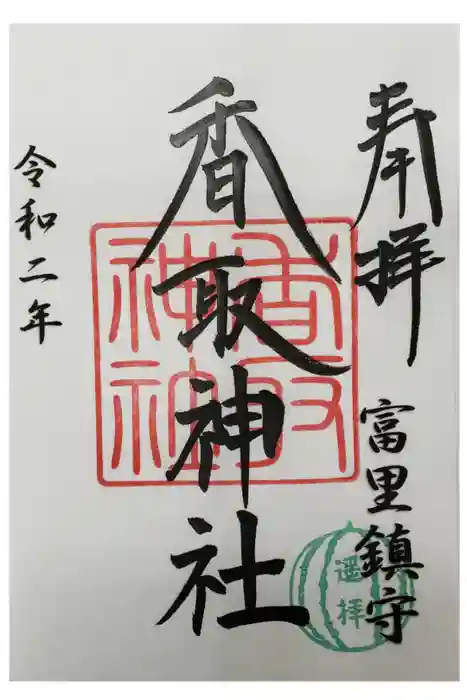 奉拝
富里鎮守
遥拝
香取神社
香取神社
令和二年